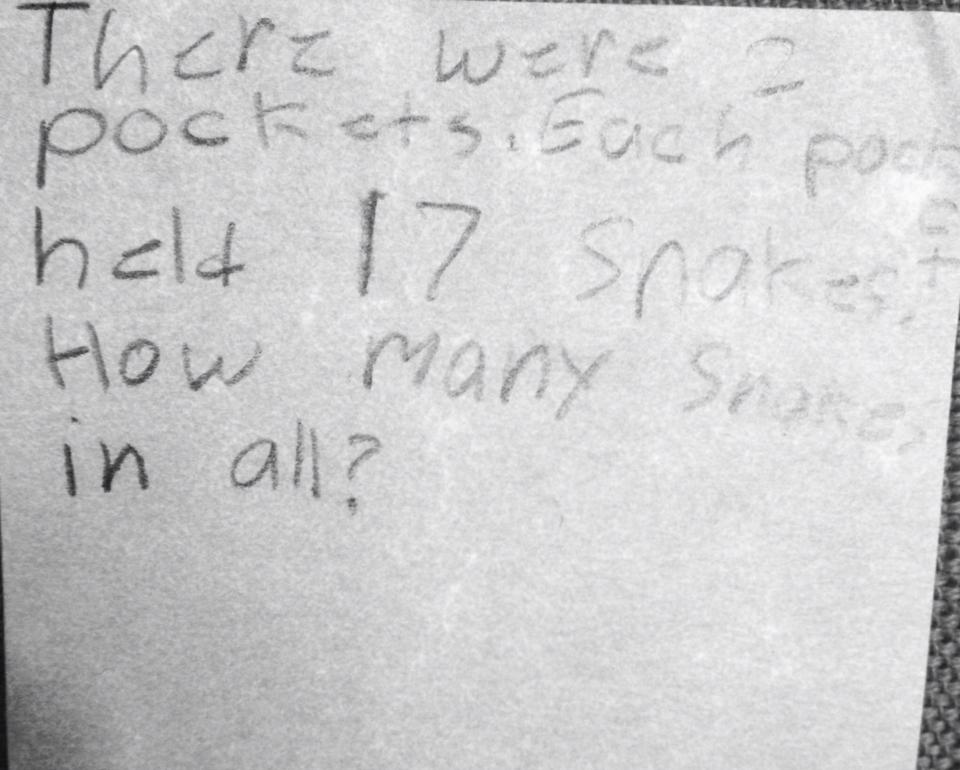 There were 2
pockets. Each pocket
held 17 Snakes.
How many Snakes
in all?